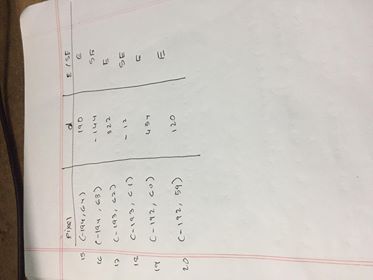 Pixel d E / SE
15 (-194, 64) 190 E
16 (-194, 63) -144 SE
17 (-193, 62) 322 E
18 (-193, 61) -12 SE
19 (-192, 60) 454 E
20 (-192, 59) 120 E